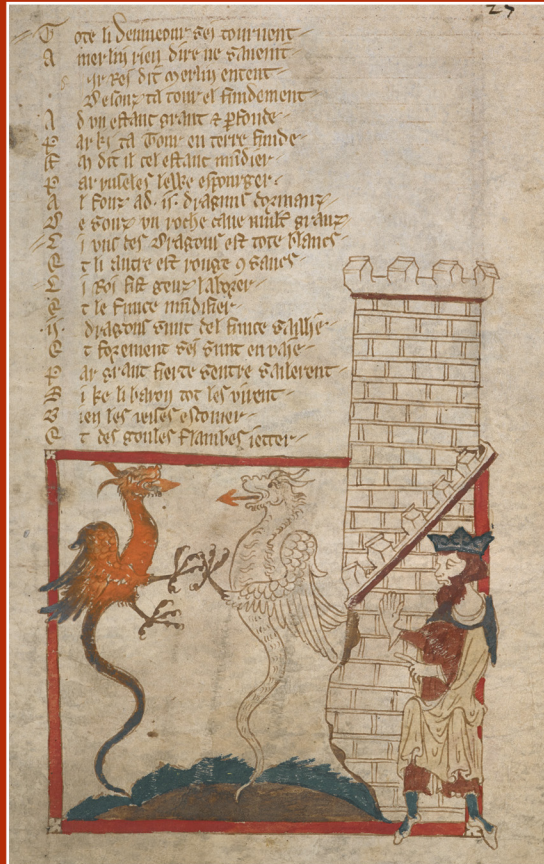 27
Tote li Deuineour sei tournent
A merlin rien dire ne sauent
Rei dit Merlin entent
Desouz ta tour el fundement
Ad vn estanc grant & pfonde
Par ki ta Tour en terre funde
dit il cel estanc
Par ruseles lewe espourger
Al founz ad .ij. dragouns dormanz
De souz vn roche caue mult granz
Li vns des Dragons est tote blancs
Et li autre est rouge 9 sancs
Li Roi fist
Et le
.ij. dragons sunt del saillie
Et forement sei sunt en
Par grant fierte sentre sailerent
Si ke li baron tot les virent
Bien les veises
Et des goules flambes ietter